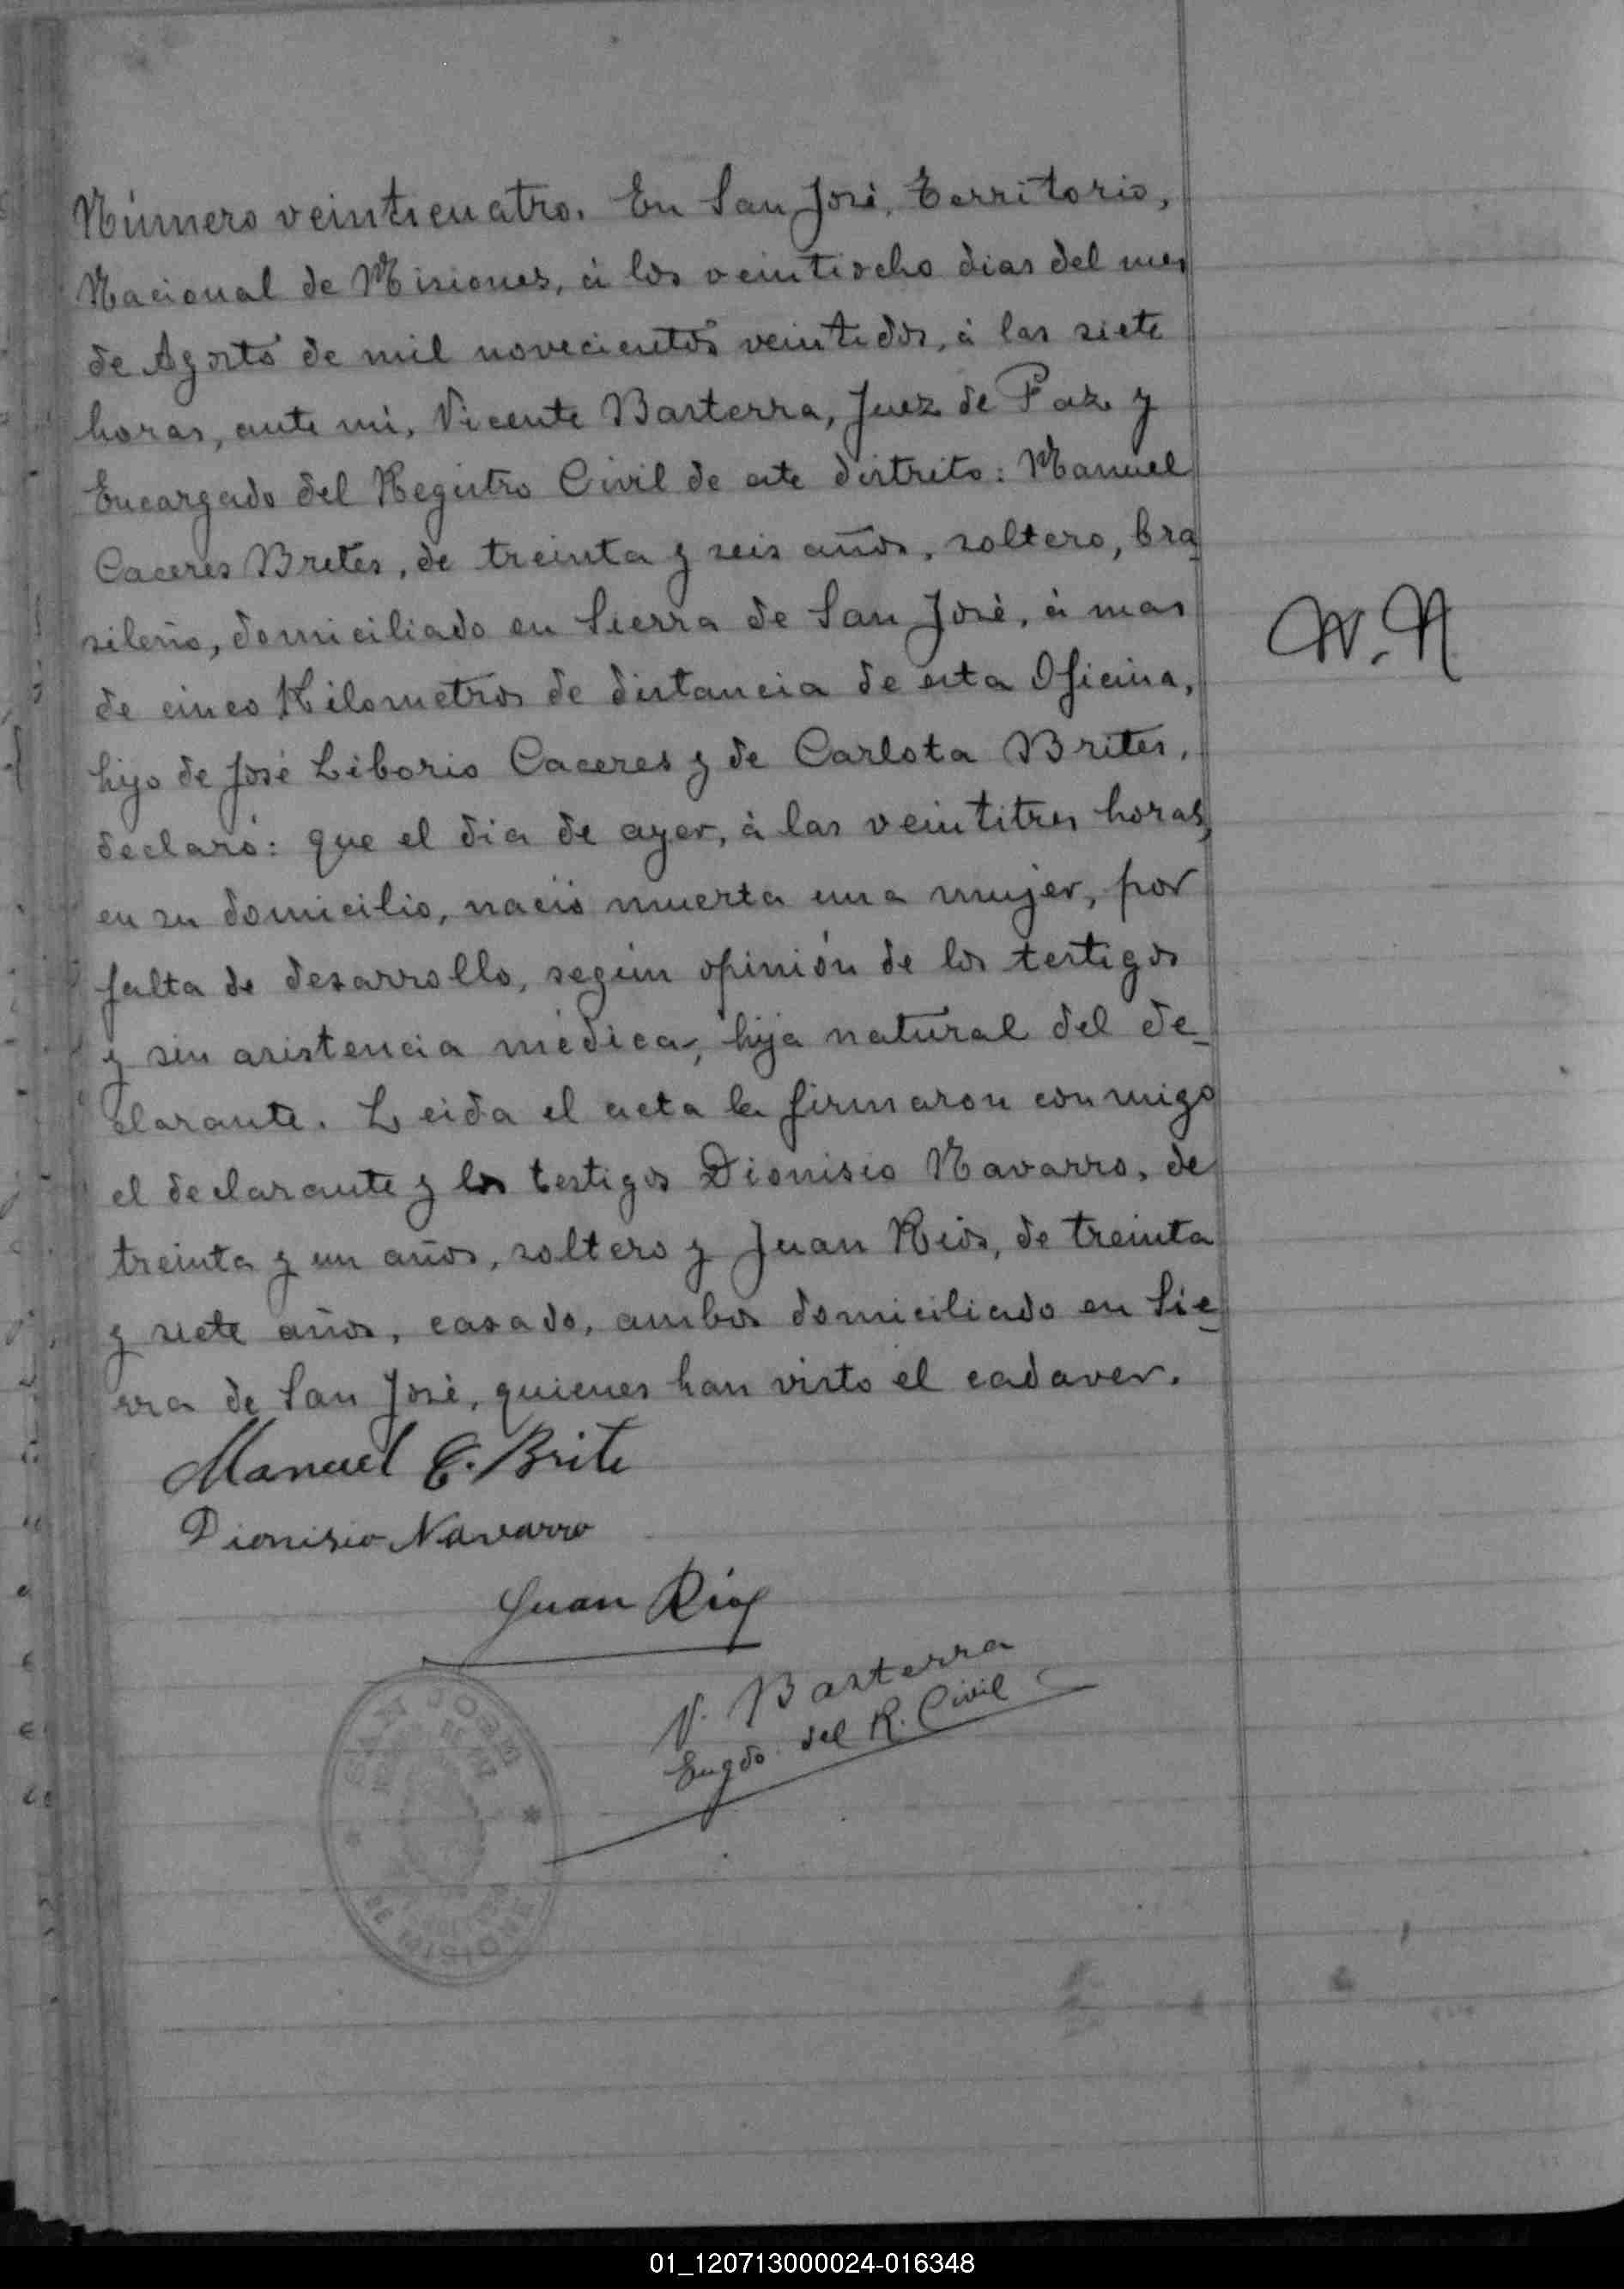 Número veinticuatro. En San José, Territorio,
Nacional de Misiones, á los veintiocho dias del mes
de Agosto de mil novecientos veintidos, á las siete
horas, ante mi, Vicente Basterra, Juez de Paz y
Encargado del Registro Civil de este distrito: Manuel
Caceres Brites, de treinta y seis años, soltero, bra
sileño, domiciliado en Sierra de San José, á mas
de cinco Kilometros de distancia de esta Oficina,
hijo de José Liborio Caceres y de Carlota Brites,
declaró: que el dia de ayer, á las veintitres horas,
en su domicilio, nació muerta una mujer, por
falta de desarrollo, según opinión de los testigos
y sin asistencia médica, hija natural del de_
clarante. Leida el acta la firmaron conmigo
el declarante y los testigos Dionisio Navarro, de
treinta y un años, soltero y Juan Rios, de treinta
y siete años, casado, ambos domiciliado en Sie_
rra de San José, quienes han visto el cadaver.
N. N.
Manuel C. Brite
Dionisio Navarro
Juan Rios
V. Basterra
Engdo. del R. Civil
SAN JOSE
DE PAZ
DE MISIONES
01_120713000024-016348